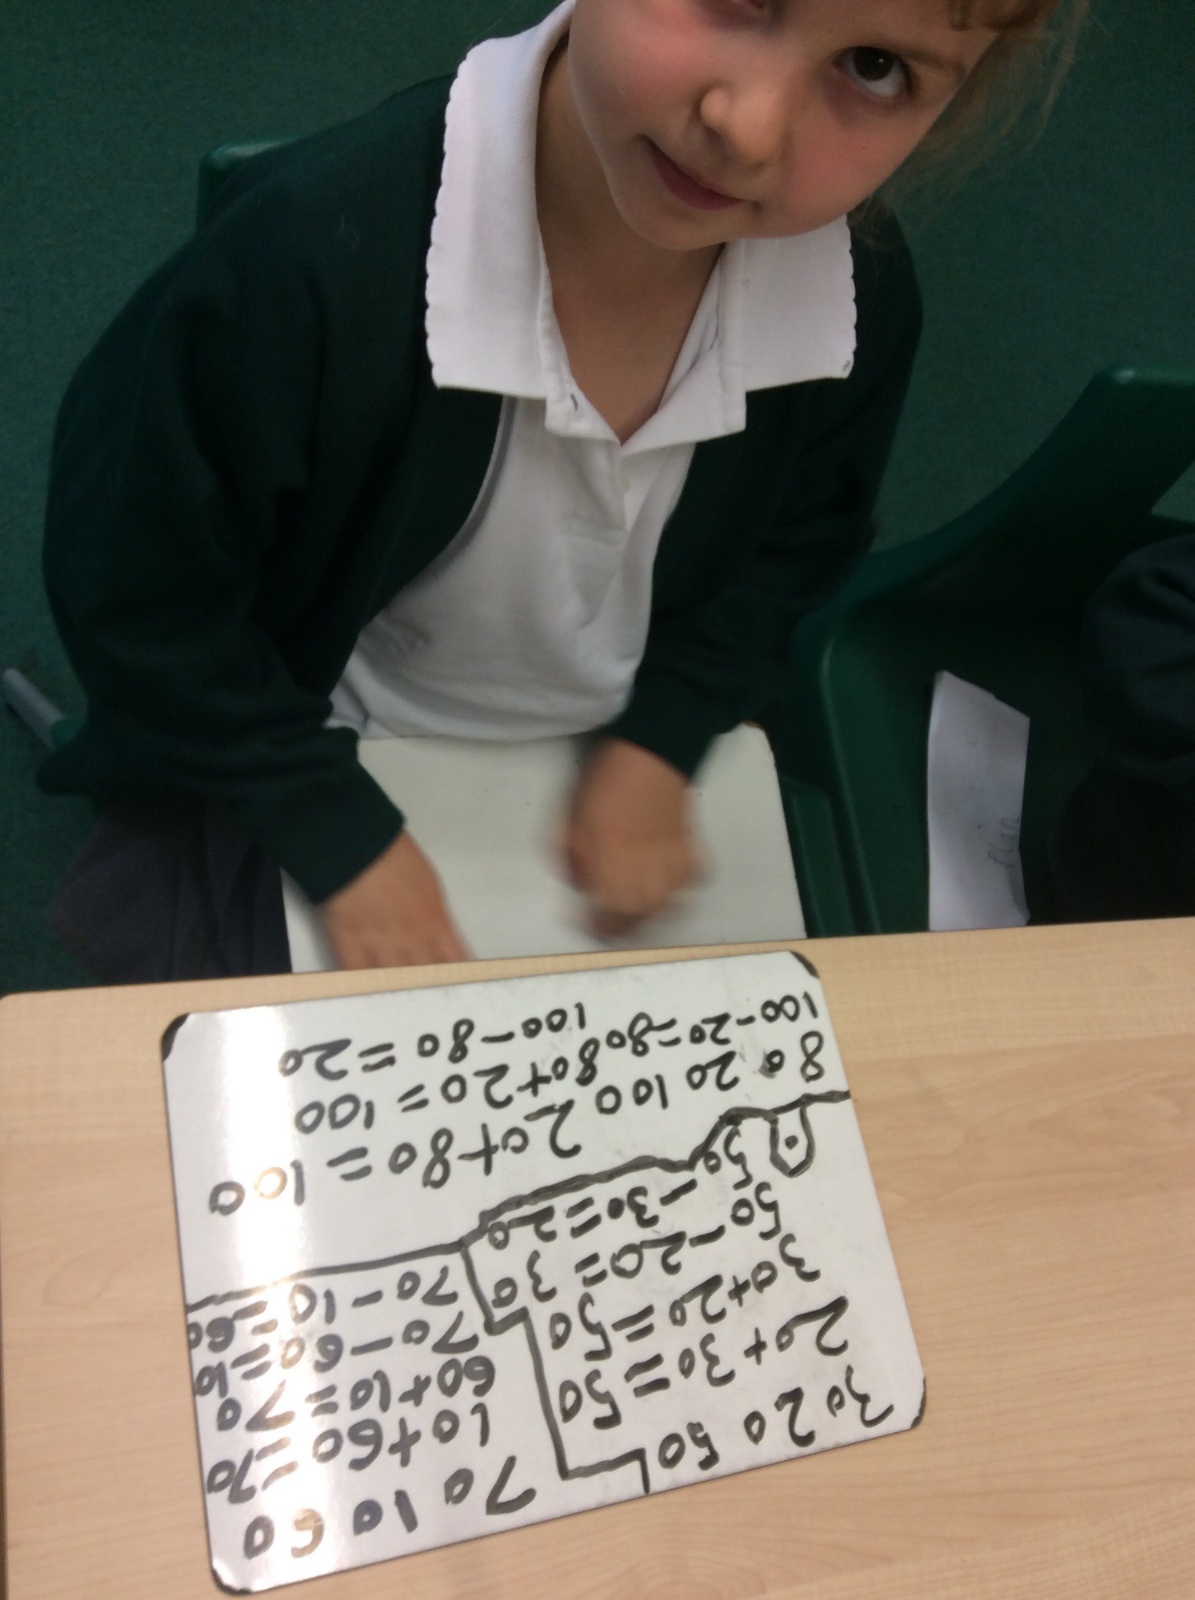 30 20 50
20+30=50
30+20=50
50-20=30
50-30=20
70 10 60
10+60=70
60+10=70
70-60=10
70-10=60
80 20 100 20+80=100
80+20=100
100-20=80 100-80=20